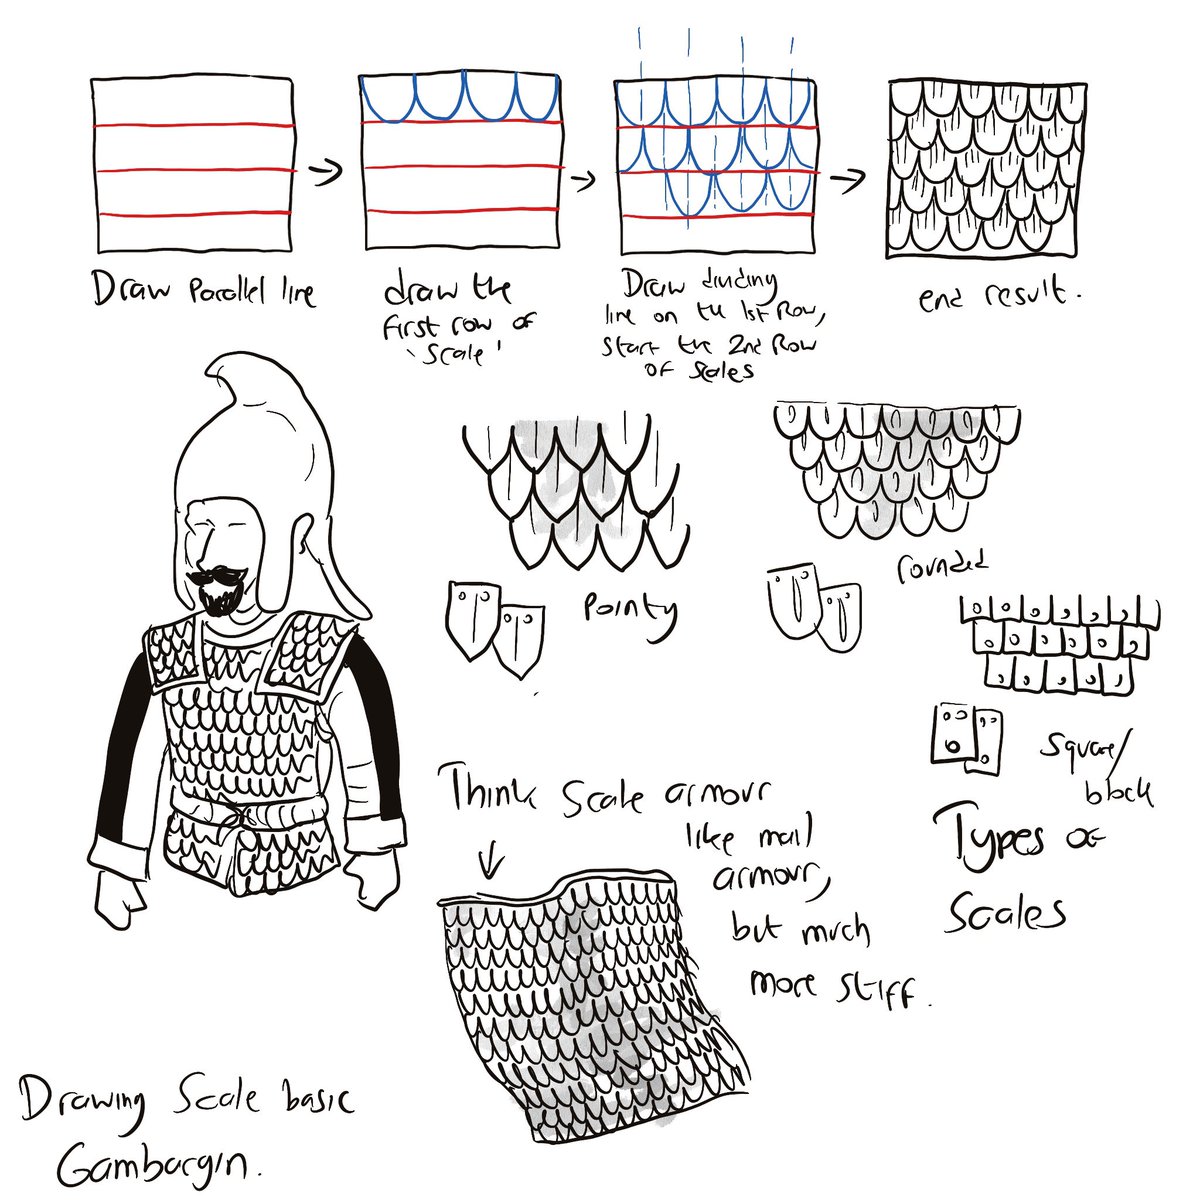 Draw Parallel line
draw the
first row of
'scale'
Draw dividing
line on the 1st Row,
start the 2nd Row
OF scales
end result.
Pointy
rounded
Square/
block
Types of
Scales
Think Scale armour
like mail
armour,
but much
more stiff.
Drawing Scale basic
Gambargin.